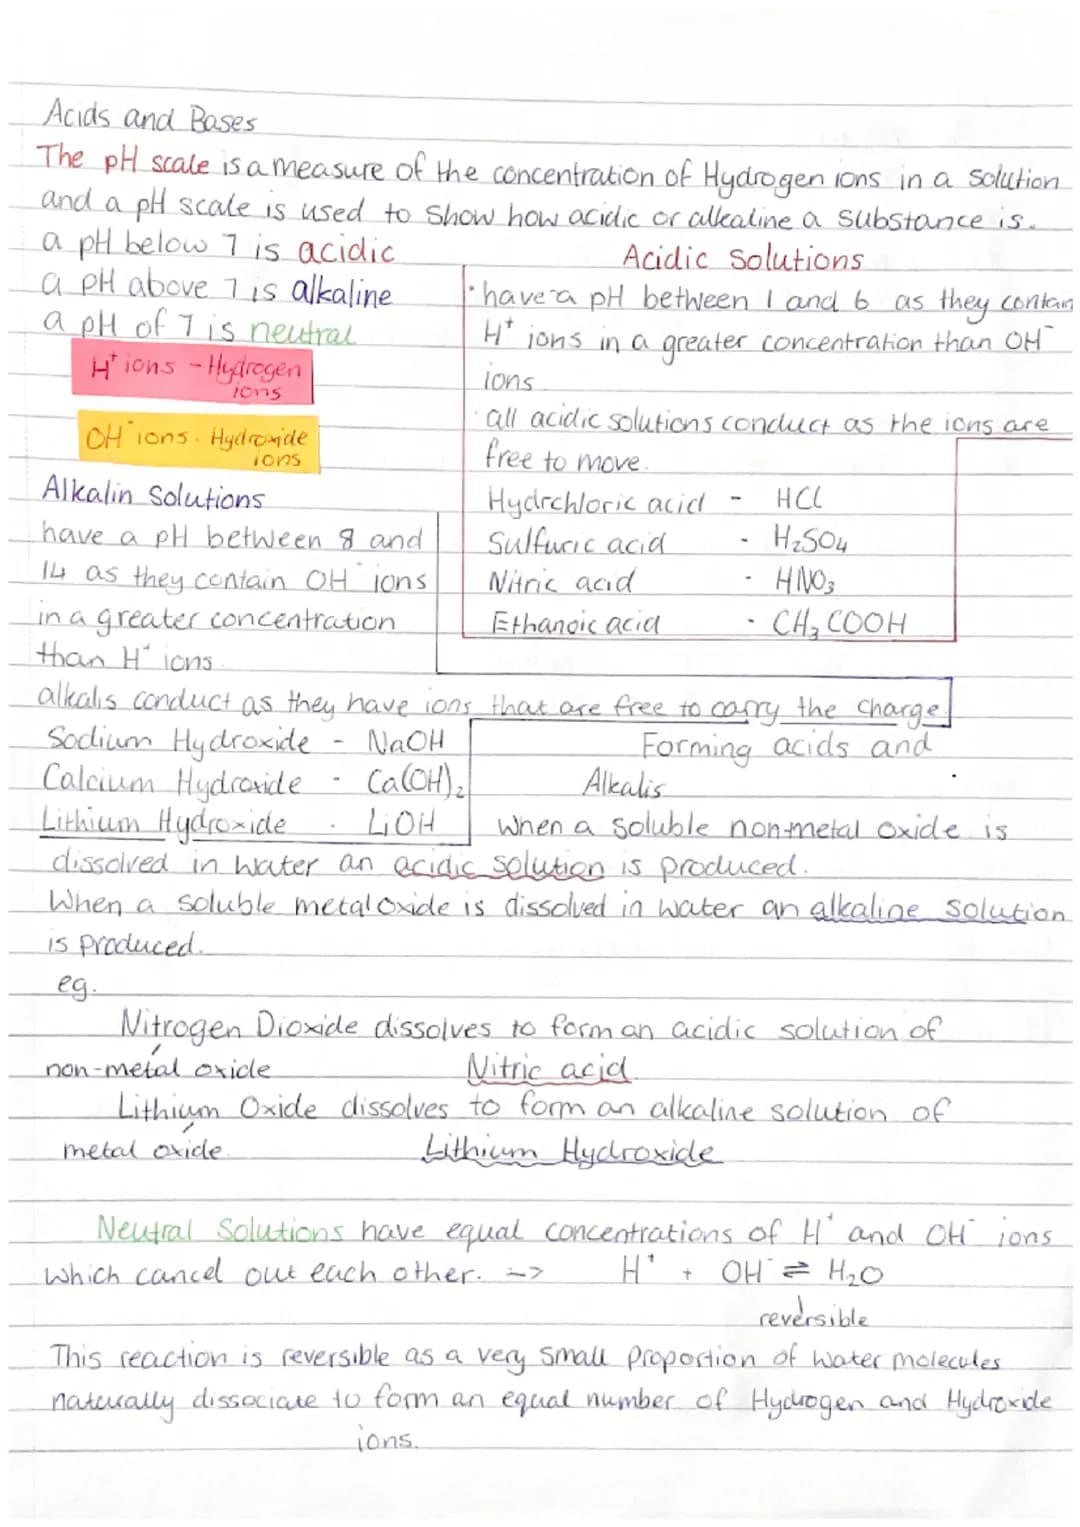 Acids and Bases
The pH scale is a measure of the concentration of Hydrogen ions in a solution
and a pH scale is used to show how acidic or alkaline a substance is.
a pH below 7 is acidic
a pH above 7 is alkaline
a pH of 7 is neutral
H⁺ ions - Hydrogen
ions
OH⁻ ions - Hydroxide
ions
Acidic Solutions
· have a pH between 1 and 6 as they contain
H⁺ ions in a greater concentration than OH⁻
ions
· all acidic solutions conduct as the ions are
free to move.
Hydrchloric acid - HCl
Sulfuric acid - H₂SO₄
Nitric acid - HNO₃
Ethanoic acid - CH₃COOH
Alkalin Solutions
have a pH between 8 and
14 as they contain OH⁻ ions
in a greater concentration
than H⁺ ions.
alkalis conduct as they have ions that are free to carry the charge.
Sodium Hydroxide - NaOH
Calcium Hydroxide - Ca(OH)₂
Lithium Hydroxide - LiOH
Forming acids and
Alkalis
When a soluble non-metal oxide is
dissolved in water an acidic solution is produced.
When a soluble metal oxide is dissolved in water an alkaline solution
is produced.
eg.
Nitrogen Dioxide dissolves to form an acidic solution of
non-metal oxide Nitric acid.
Lithium Oxide dissolves to form an alkaline solution of
metal oxide. Lithium Hydroxide
Neutral Solutions have equal concentrations of H⁺ and OH⁻ ions
which cancel out each other. -> H⁺ + OH⁻ ⇌ H₂O
reversible
This reaction is reversible as a very small proportion of water molecules
naturally dissociate to form an equal number of Hydrogen and Hydroxide
ions.